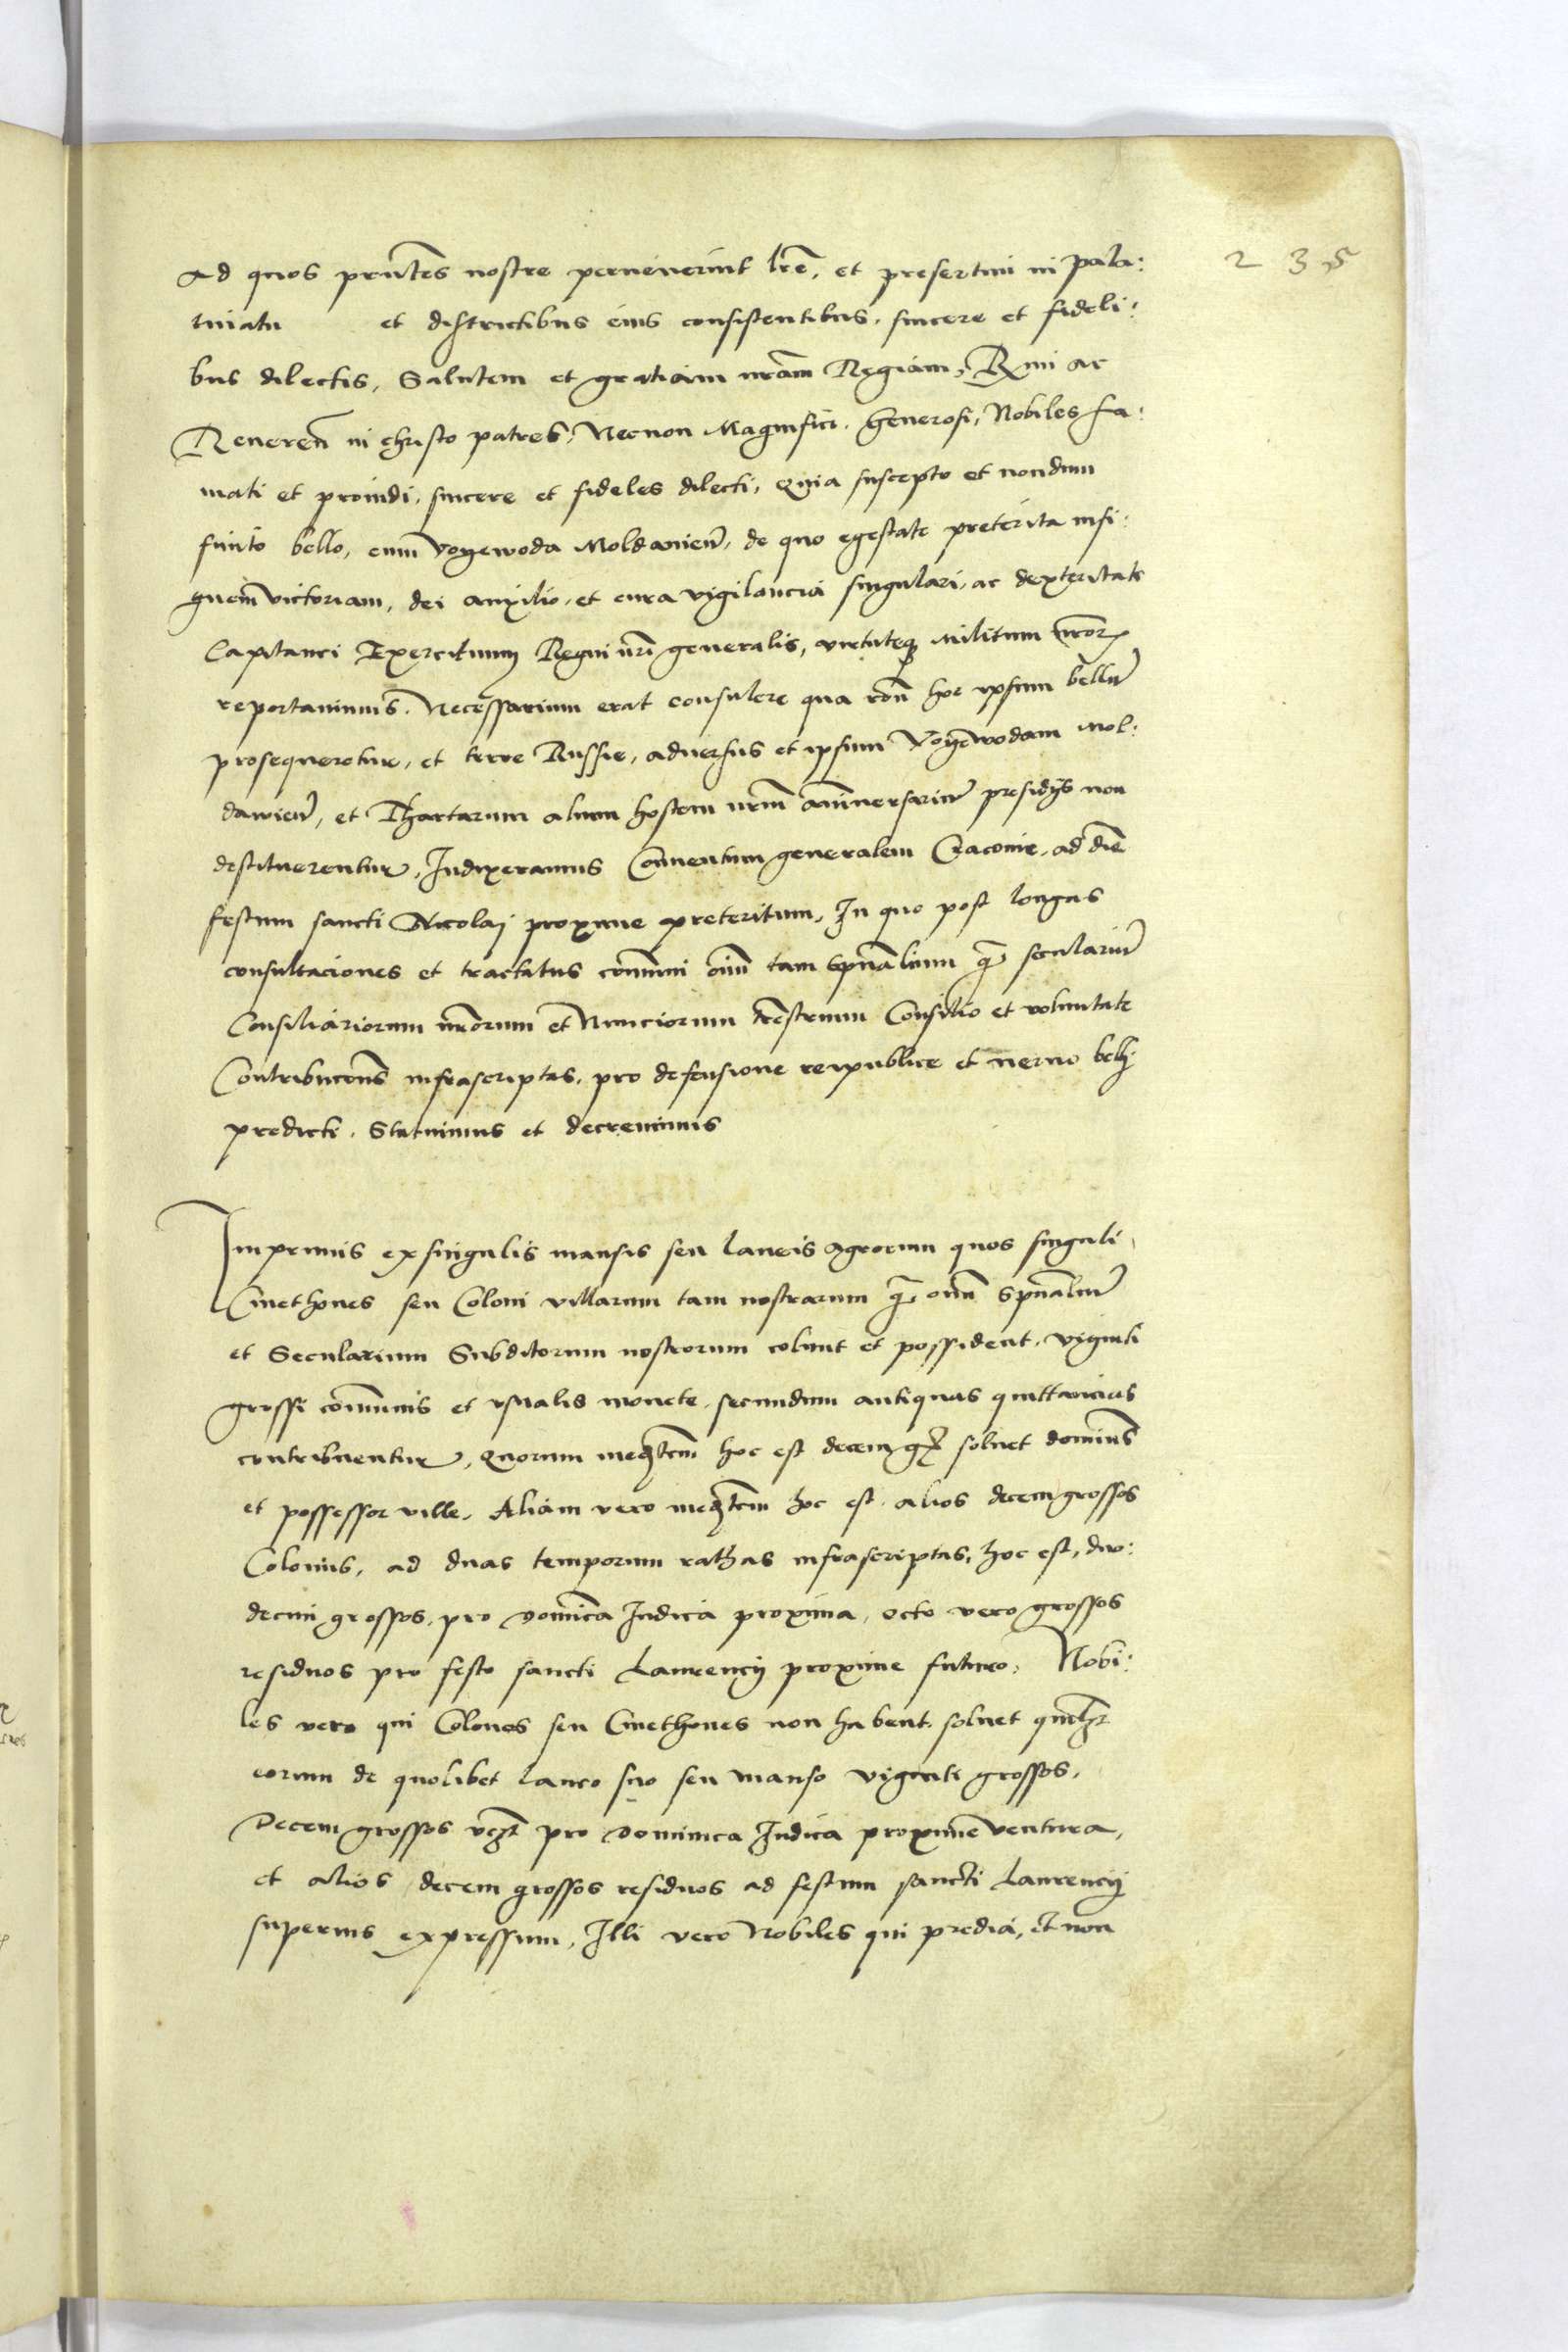 235
Ad quos prñtes nostre pervenerint lrẽ, et presertim in pala:
tinatu et districtibus eius consistentibus, sincere et fideli:
bus dilectis, Salutem et gratiam nrãm Regiam, Rmi ac
Reverẽn in christo patres, Necnon Magnifici, Generosi, Nobiles fa:
mati et providi, sincere et fideles dilecti, Quia suscepto et nondum
finito bello, cum Voyewoda Moldavieñ, de quo egestate preterita insi:
gnem victoriam, dei auxilio, et cura vigilancia singulari, ac dexteritate
Capitanei Exercituum Regni nri generalis, virtuteq militum nror
reportavimus. Necessarium erat consulere qua rõne hoc ipsum bellũ
prosequeretur, et terre Russie, adversus et ipsum Voyewodam Mol:
davieñ, et Thartarum alium hostem nrm anniversariũ presidijs non
destituerentur, Indixeramus Conventum generalem Cracovie, ad diẽ
festum sancti Nicolaj proxime preteritum, In quo post longas
consultaciones et tractatus cõmuni oĩm tam spũalium q̃ seculariũ
Consiliariorum nrõrum et Nunciorum trẽstrium Consilio et voluntate
Contribucões infrascriptas, pro defensione reipublice et nervo belli
predicti, Statuimus et decrevimus
Imprimis ex singulis mansis seu laneis agrorum quos singuli
Cmethones seu Coloni villarum tam nostrarum q̃ oĩm spũaliũ
et Secularium Subditorum nostrorum colunt et possident, viginti
grossi cõmunis et usualis monete, secundum antiquas quittancias
contribuentur, Quorum medtem hoc est decem gr solvet dominus
et possessor ville, Aliam vero medtem hoc est alios decem grossos
Colonus, ad duas temporum rathas infrascriptas, hoc est, duo:
decim grossos, pro dominica Judica proxima, octo vero grossos
residuos pro festo sancti Laurencij proxime futuro, Nobi:
les vero qui Colonos seu Cmethones non habent, solvet quilibet
eorum de quolibet laneo suo seu manso viginti grossos,
Decem grossos vczt pro Dominica Judica proxime ventura,
et alios decem grossos residuos ad festum sancti Laurencij
superius expressum, Illi vero Nobiles qui predia, et non